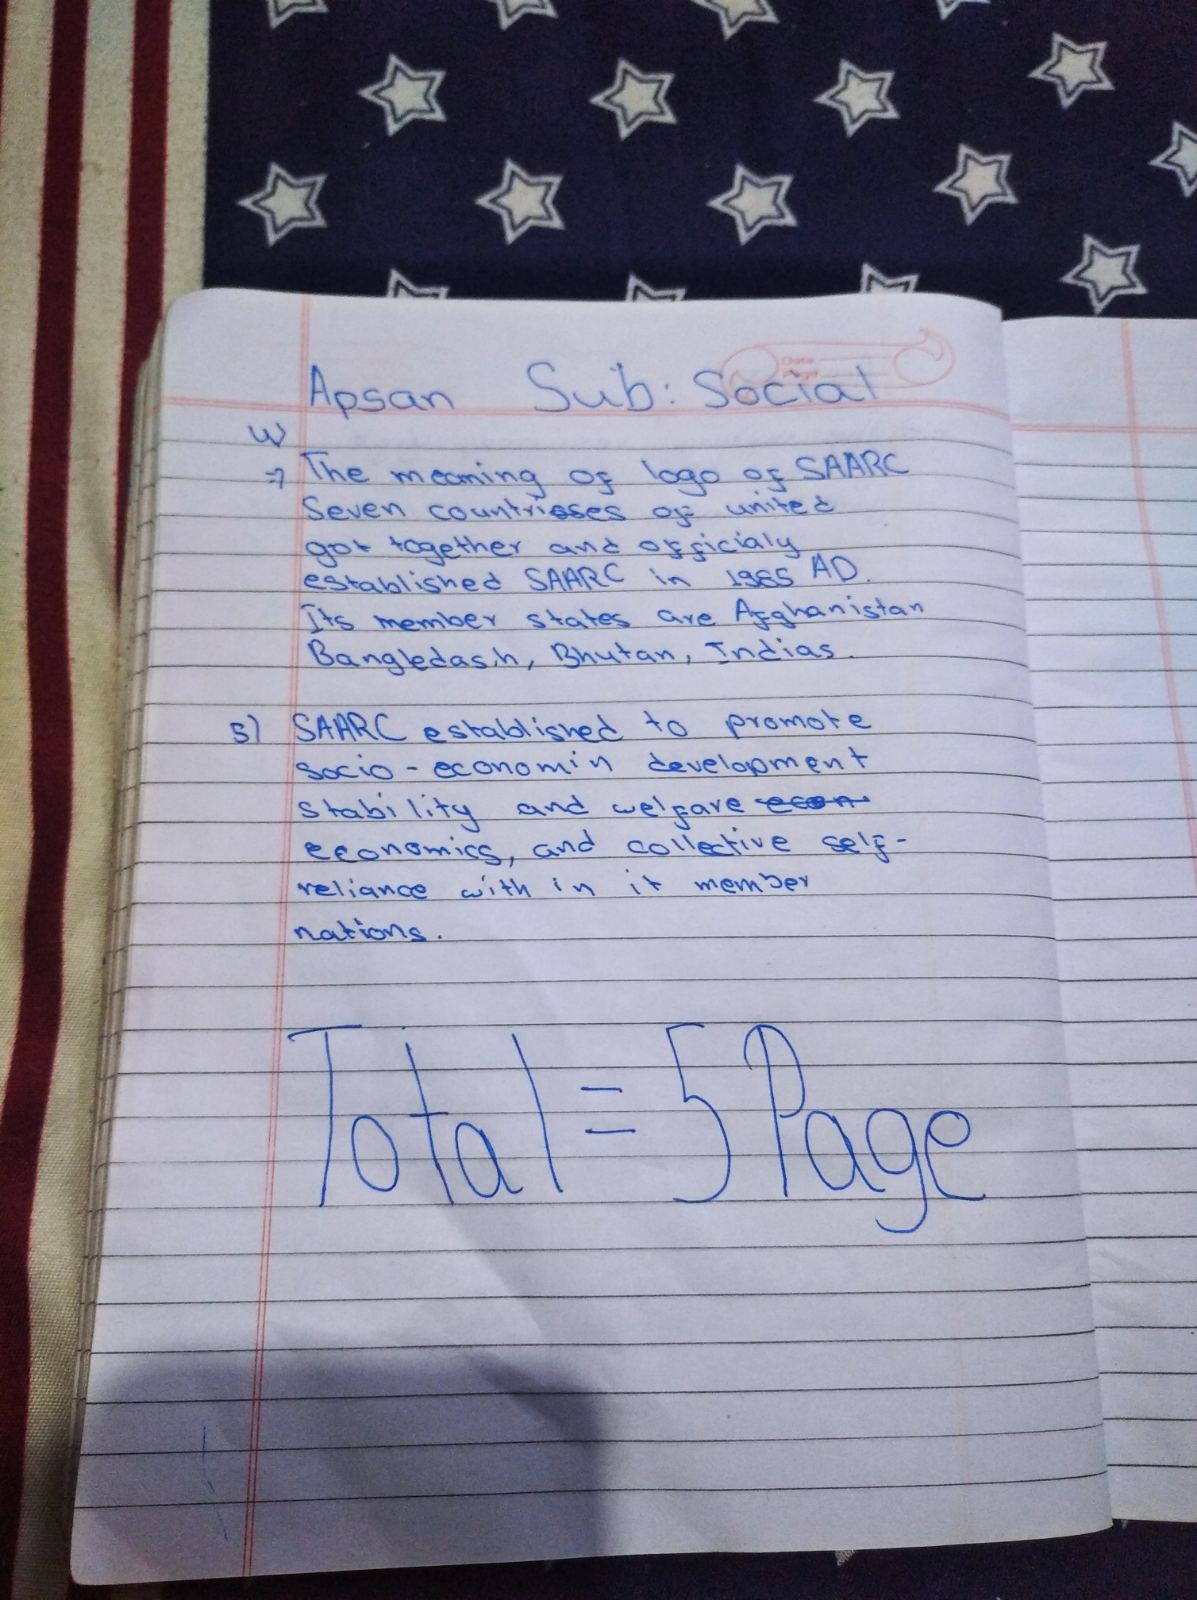 Apsan Sub: Social
4)
⇒ The meaning of logo of SAARC
Seven countrioses of united
got together and officialy
established SAARC in 1985 AD.
Its member states are Afghanistan
Bangledash, Bhutan, Indias.
5) SAARC established to promote
socio-economin development
stability and welfare econ
economics, and collective self-
reliance with in it member
nations.
Total = 5 Page